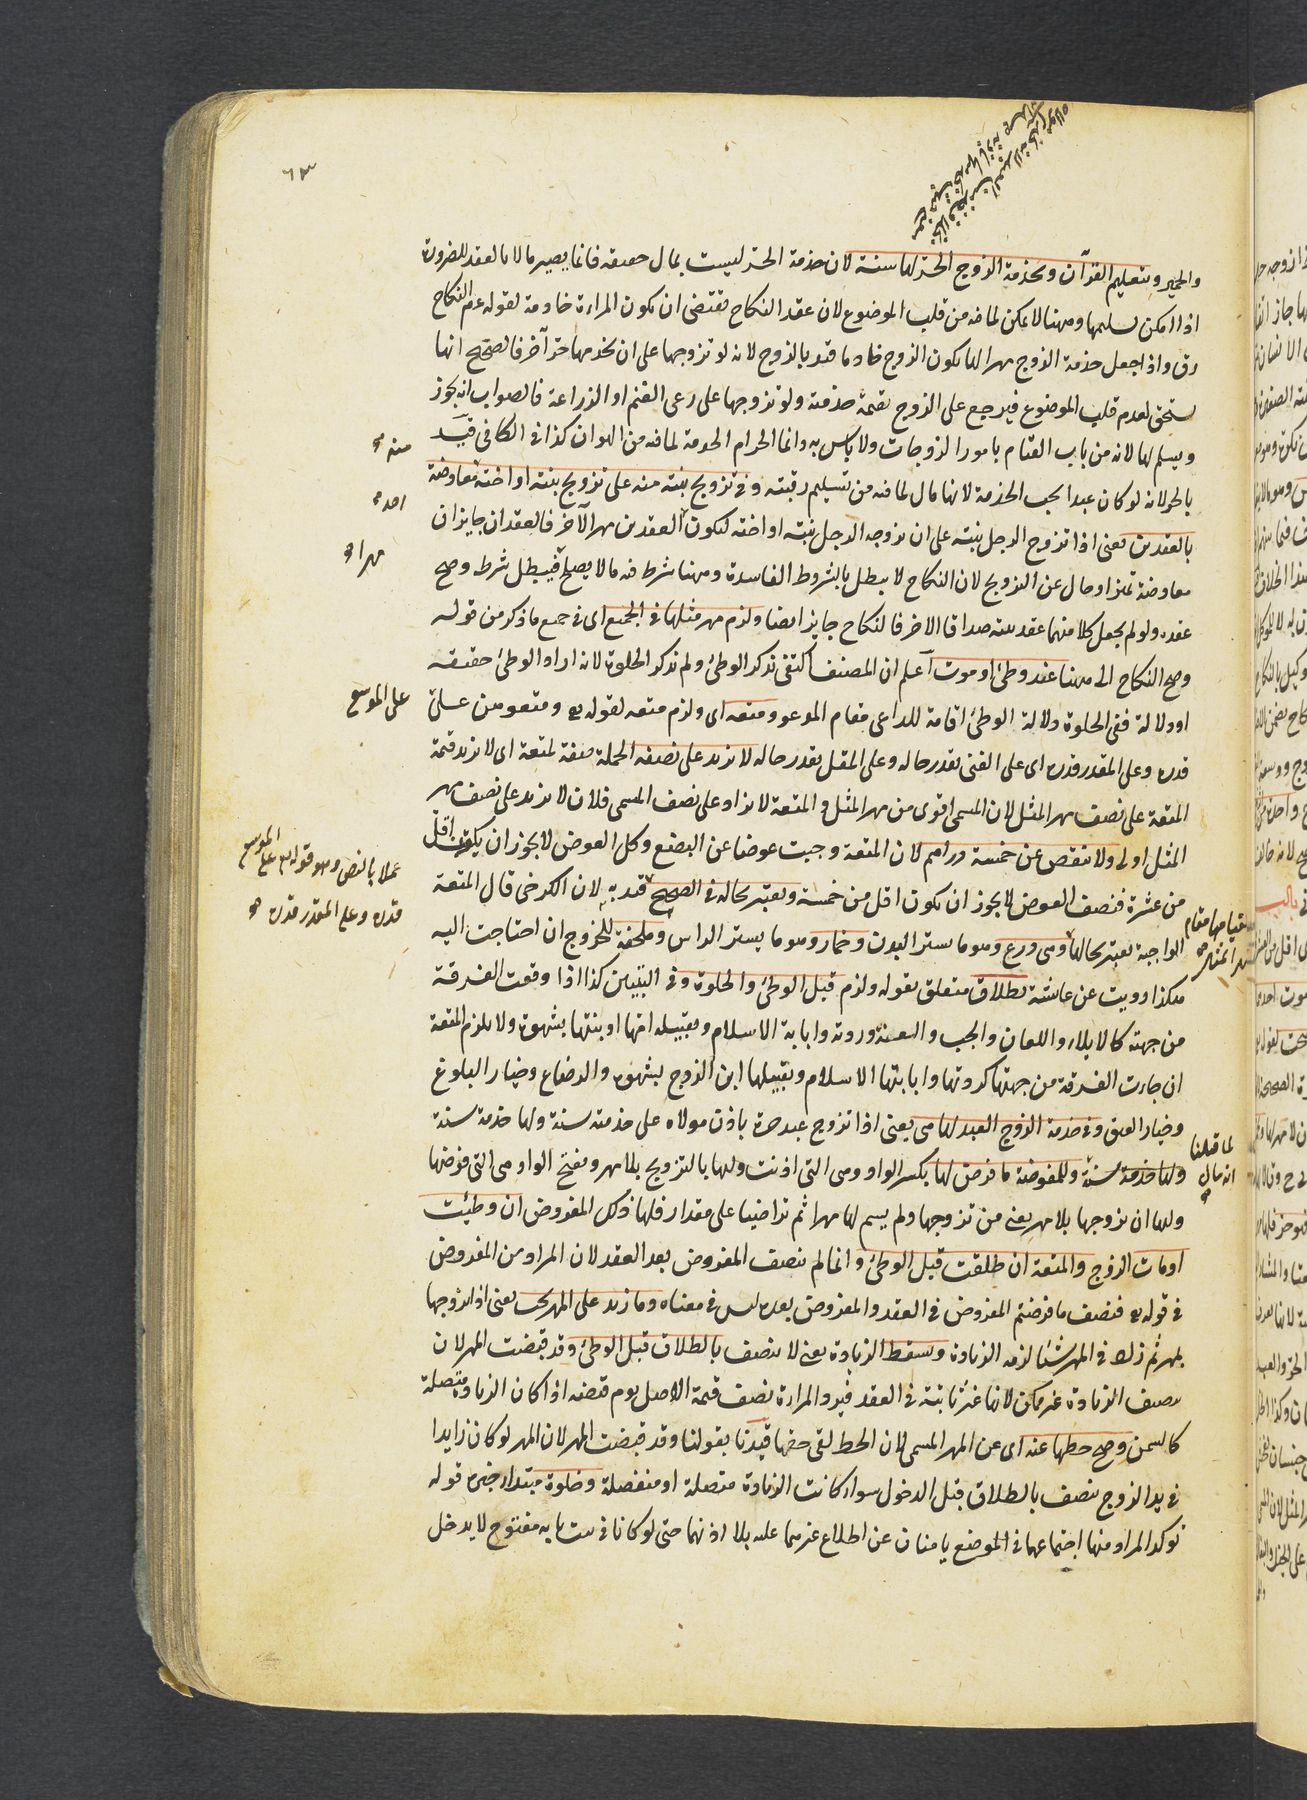 والخمر وبتعليم القرآن وبخدمة الزوج الحر لها سنة لان خدمة الحر ليست بمال حقيقة فانما يصير مالا بالعقد للضرورة
اذا امكن تسليمها وههنا لا يمكن لما فيه من قلب الموضوع لان عقد النكاح يقتضي ان تكون المراءة خادمة لقوله عم النكاح
رق واذا جعل خدمة الزوج مهرا لها يكون الزوج خادما قيد بالزوج لانه لو تزوجها على ان يخدمها حر آخر فالصحيح انها
تستحق لعدم قلب الموضوع فيرجع على الزوج بقيمة خدمته ولو تزوجها على رعى الغنم او الزراعة فالصواب انه يجوز
ويسلم لها لانه من باب القيام بامور الزوجات ولا باس به وانما الحرام الخدمة لما فيه من الهوان كذا في الكافي قيد
منه
بالحر لانه لو كان عبدا يجب الخدمة لانها مال لما فيه من تسليم رقبته وفي تزويج بنته منه على تزويج بنته او اخته معاوضة
احد
بالعقدين يعني اذا تزوج الرجل بنته على ان يزوجه الرجل بنته او اخته ليكون العقدين مهر الآخر فالعقدان جايزان
مهرا
عقده ولو لم يجعل كلا منهما عقد بنته صداقا لاخر فالنكاح جايز ايضا ولزم مهر مثلها في الجميع اى في جمع ما ذكر من قوله
وصح النكاح الى ههنا عند وطئ او موت اعلم ان المصنف اكتفى بذكر الوطئ ولم يذكر الخلوة لانه اراد الوطئ حقيقة
او دلالة ففي الخلوة دلالة الوطئ اقامة للداعى مقام المدعو ومتعة اى ولزم متعة لقوله تع ومتعوهن على
على الموسع
قدره وعلى المقتر قدره اى على الغنى بقدر حاله وعلى المقل بقدر حاله لا تزيد على نصفه الجملة صفة لمتعة اى لا تزيد قيمة
المتعة على نصف مهر المثل لان المسمى اقوى من مهر المثل والمتعة لا تزاد على نصف المسمى فلان لا تزيد على نصف مهر
المثل اولى ولا تنقص عن خمسة دراهم لان المتعة وجبت عوضا عن البضع وكل العوض لا يجوز ان يكون اقل
عملا بالنص وهو قوله تع على الموسع
قدره وعلى المقتر قدره
من عشرة فنصف العوض لا يجوز ان يكون اقل من خمسة ويعتبر بحاله في الصحيح قيد به لان الكرخى قال المتعة
لقيامها مقام
مهر المثل
الواجبة يعتبر بحالها وهي درع وهو ما يستر البدن وخمار وهو ما يستر الراس وملحفة للخروج ان احتاجت اليه
هكذا رويت عن عائشة بطلاق متعلق بقوله ولزم قبل الوطئ والخلوة وفي التبيين كذا اذا وقعت الفرقة
من جهته كالايلاء واللعان والجب والعنة وردته وابائه الاسلام وتقبيله امها او بنتها بشهوة ولا يلزم المتعة
ان جاءت الفرقة من جهتها كردتها وابائها الاسلام وتقبيلها ابن الزوج بشهوة والرضاع وخيار البلوغ
وخيار العتق وفي خدمة الزوج العبد لها هي يعني اذا تزوج عبد حرة باذن مولاه على خدمته سنة ولها خدمة سنة
لما قلنا
انه مال
ولها خدمة سنة وللمفوضة ما فرض لها بكسر الواو وهي التي اذنت وليها بالتزويج بلا مهر وبفتح الواو هي التي فوضها
وليها ان يزوجها بلا مهر يعني من تزوجها ولم يسم لها مهرا ثم تراضيا على مقدار فلها ذلك المفروض ان وطئت
او مات الزوج والمتعة ان طلقت قبل الوطئ وانما لم ينصف المفروض بعد العقد لان المراد من المفروض
في قوله تع فنصف ما فرضتم المفروض في العقد والمفروض بعده ليس في معناه وما زيد على المهر يجب يعني اذا تزوجها
بمهر ثم زاد في المهر شيئا لزمه الزيادة ويسقط الزيادة يعني لا ينصف بالطلاق قبل الوطئ وقد قبضت المهر لان
تنصيف الزيادة غير ممكن لانها غير ثابتة في العقد فيرد المراءة نصف قيمة الاصل يوم قبضه اذا كان الزيادة متصلة
كالسمن وصح حطها عنه اى عن المهر المسمى لان الحط لقى حقها قيدنا بقولنا وقد قبضت المهر لان المهر لو كان زايدا
في يد الزوج ينصف بالطلاق قبل الدخول سواء كانت الزيادة متصلة او منفصلة وخلوة مبتداء خبره قوله
توكد المراد منها اجتماعهما في الموضع يامنان عن اطلاع غيرهما عليه بلا اذنهما حتى لو كانا في بيت بابه مفتوح لا يدخل